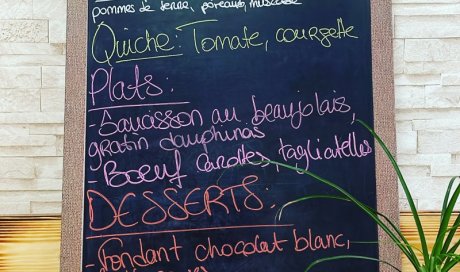 pommes de terre, poireaux, muscade
Quiche: Tomate, courgette
Plats:
- Saucisson au beaujolais,
gratin dauphinois
- Boeuf carottes, tagliatelles
DESSERTS:
- Fondant chocolat blanc,